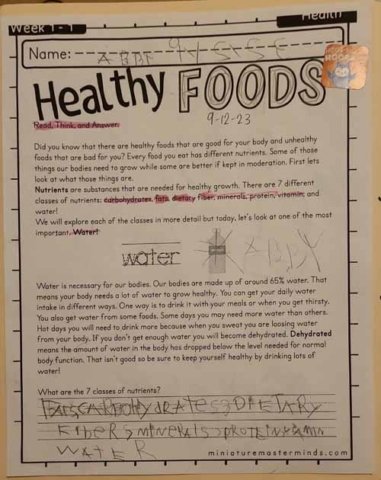 Week 1 - 1
Health
Name:
Healthy FOODS
9-12-23
Read, Think, and Answer.
Did you know that there are healthy foods that are good for your body and unhealthy
foods that are bad for you? Every food you eat has different nutrients. Some of those
things our bodies need to grow while some are better if kept in moderation. First lets
look at what those things are.
Nutrients are substances that are needed for healthy growth. There are 7 different
classes of nutrients: carbohydrates, fats, dietary fiber, minerals, protein, vitamin, and
water!
We will explore each of the classes in more detail but today, let's look at one of the most
important. Water!
water
Water is necessary for our bodies. Our bodies are made up of around 65% water. That
means your body needs a lot of water to grow healthy. You can get your daily water
intake in different ways. One way is to drink it with your meals or when you get thirsty.
You also get water from some foods. Some days you may need more water than others.
Hot days you will need to drink more because when you sweat you are loosing water
from your body. If you don't get enough water you will become dehydrated. Dehydrated
means the amount of water in the body has dropped below the level needed for normal
body function. That isn't good so be sure to keep yourself healthy by drinking lots of
water!
What are the 7 classes of nutrients?
DIETARY
FIBER, MINERALS, PROTEIN
WATER
miniaturemasterminds.com